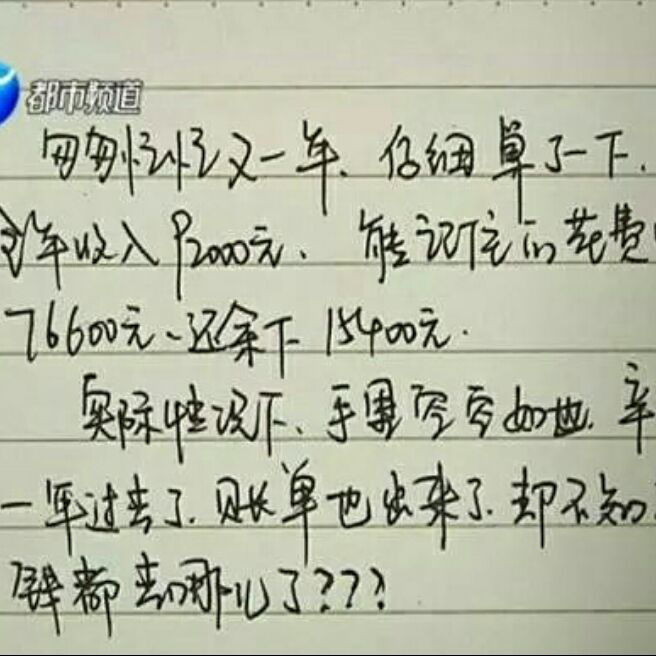 都市频道
匆匆忙忙又一年、仔细算了一下、
全年收入92000元、能记住的花费
76600元、还余下15400元.
实际情况下、手里空空如也、辛
一年过去了、账单也出来了、却不知
钱都去哪儿了???